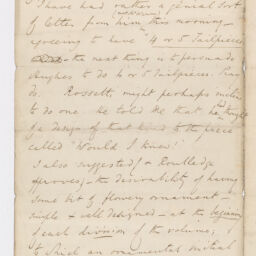 I have had rather a genial sort
of letter from him this morning –
agreeing to have 4 or 5 Tailpieces
the next thing is to persuade
Hughes to do 4 or 5 Tailpieces.
do. Rossetti might perhaps
to do one. He told me that he had thought
of a design of that kind to the piece
called "Would I knew!"
I also suggested, & Routledge
approves, – the desirability of having
some bit of flowery ornament –
simple & well designed – at the beginning
of each division of the volume;
to which an ornamental initial